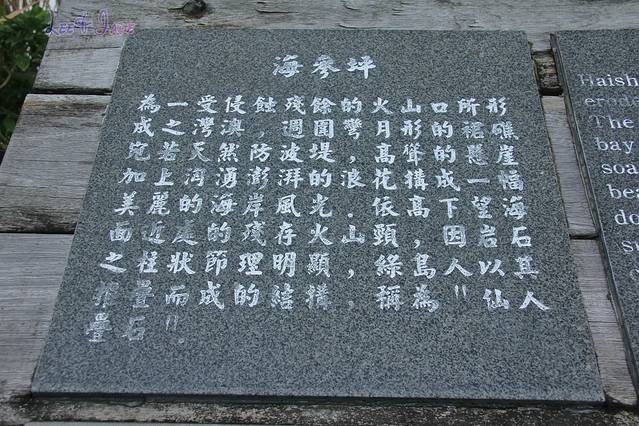 海參坪
為一受侵蝕殘餘的火山口所形
成之灣澳,週圍彎月形的裙礁
宛若天然防波堤,高聳的懸崖
加上洶湧澎湃的浪花構成一幅
美麗的海岸風光.依高下望海
面近處的殘存火山頸,因岩石
之柱狀節理明顯,綠島人以其
堆疊而成的結構,稱為"仙人
疊石".
Haish
erod
The
bay
soa
be
do